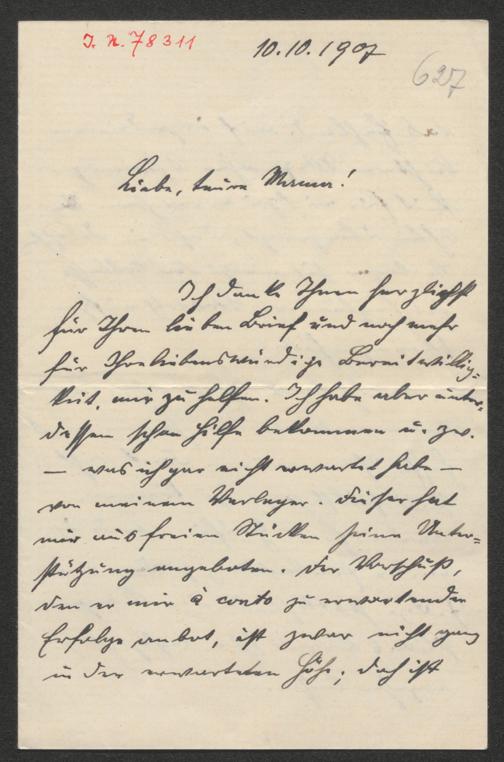 J. N. 78311
10.10.1907
627
Liebe, teure Mama!
Ich danke Ihnen herzlichst
für Ihren lieben Brief und noch mehr
für Ihre liebenswürdige Bereitwillig=
keit, mir zu helfen. Ich habe aber unter=
dessen schon Hilfe bekommen u. zw.
— was ich gar nicht erwartet habe —
von meinem Verleger. Dieser hat
mir aus freien Stücken seine Unter=
stützung angeboten. Der Vorschuß,
den er mir à conto zu erwartender
Erfolge anbot, ist zwar nicht ganz
in der erwarteten Höhe, doch ist